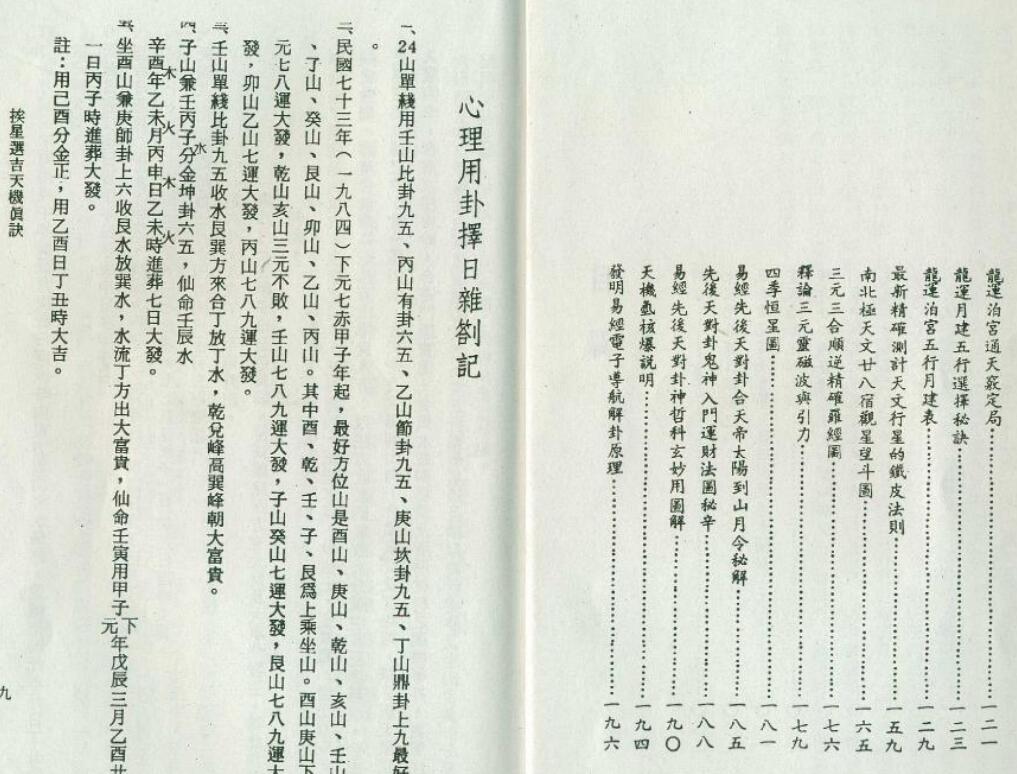 龍運泊宮通天竅定局……一二一
龍運月建五行選擇秘訣……一二三
龍運泊宮五行月建表……一二九
最新精確測計天文行星的鐵皮法則……一五九
南北極天文廿八宿觀星望斗圖……一六五
三元三合順逆精確羅經圖……一七六
釋論三元靈磁波與引力……一七九
四季恒星圖……一八一
易經先後天對卦合天帝太陽到山月令秘解……一八五
先後天對卦鬼神入門運財法圖秘辛……一八八
易經先後天對卦神哲科玄妙用圖解……一九〇
天機氫核爆説明……一九四
發明易經電子導航解卦原理……一九六
心理用卦擇日雜劄記
一、24山單綫用壬山比卦九五、丙山有卦六五、乙山節卦九五、庚山坎卦九五、丁山鼎卦上九最好
。
二、民國七十三年(一九八四)下元七赤甲子年起,最好方位山是酉山、庚山、乾山、亥山、壬山
、子山、癸山、艮山、卯山、乙山、丙山。其中酉、乾、壬、子、艮爲上乘坐山。酉山庚山下
元七八運大發,乾山亥山三元不敗,壬山七八九運大發,子山癸山七運大發,艮山七八九運大
發,卯山乙山七運大發,丙山七八九運大發。
三、壬山單綫比卦九五收水艮巽方來合丁放丁水,乾兌峰高巽峰朝大富貴。
四、子山兼壬丙子分金坤卦六五,仙命壬辰水
水
辛酉年乙未月丙申日乙未時進葬七日大發。
木 火 木 火
五、坐酉山兼庚師卦上六收艮水放巽水,水流丁方出大富貴,仙命壬寅用甲子下元年戊辰三月乙酉廿
一日丙子時進葬大發。
註:用己酉分金正;用乙酉日丁丑時大吉。
挨星選吉天機眞訣
九